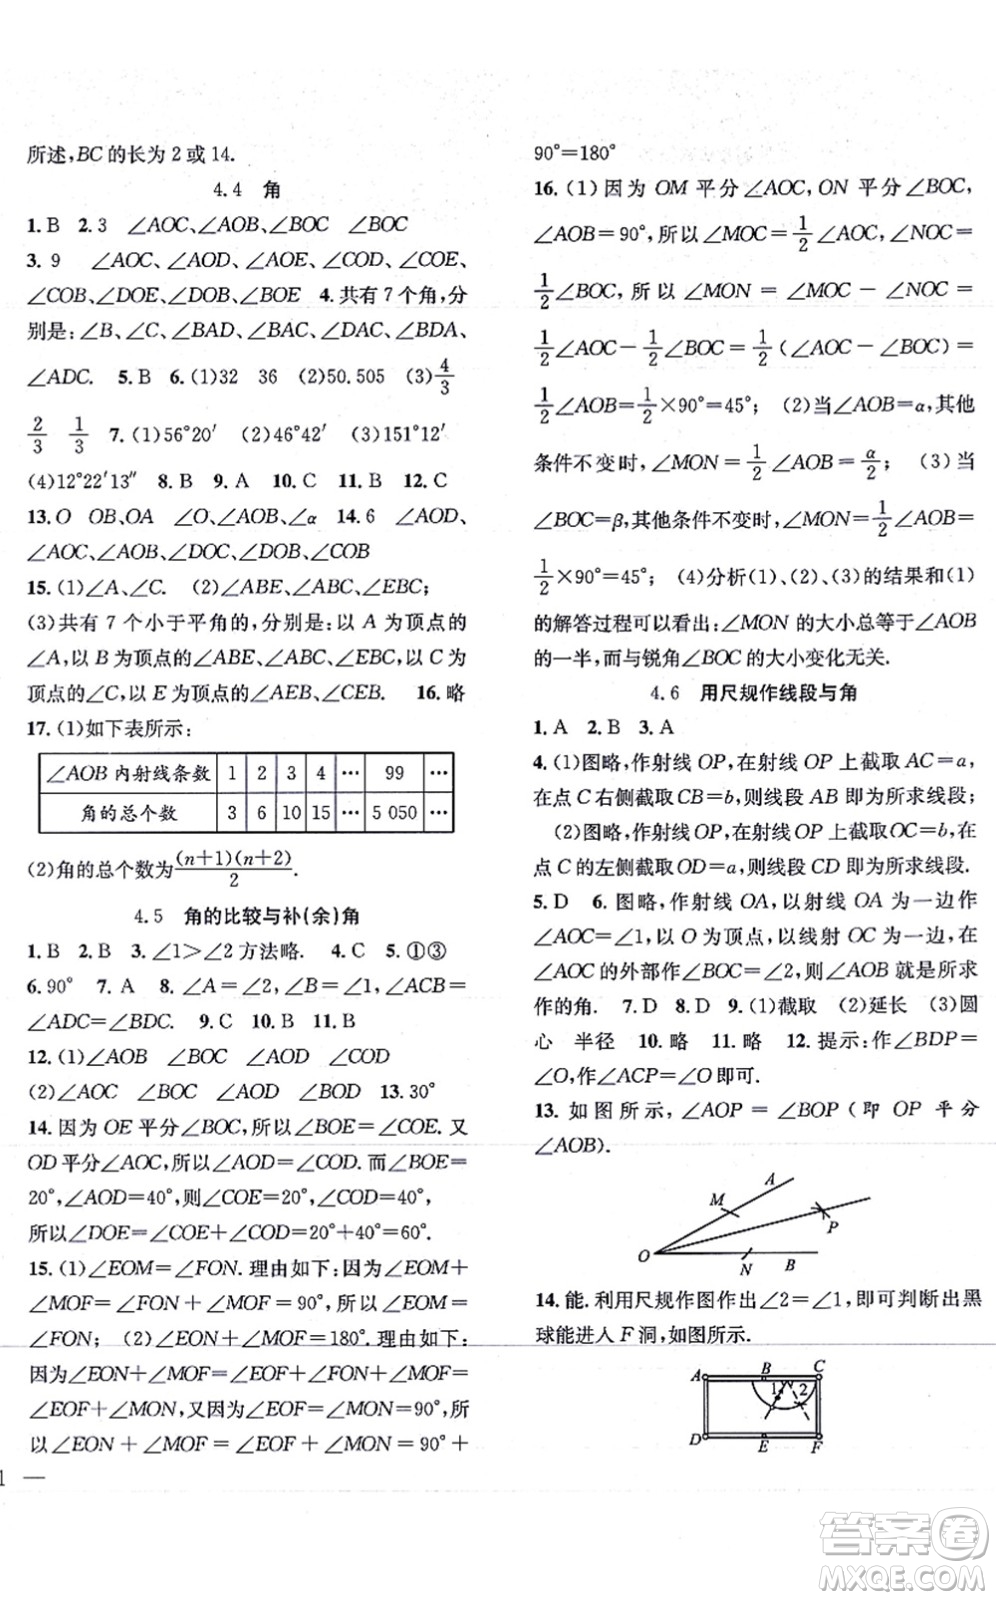 所述,BC的长为2或14.
4.4 角
1.B 2.3 ∠AOC、∠AOB、∠BOC ∠BOC
3.9 ∠AOC、∠AOD、∠AOE、∠COD、∠COE、
∠COB、∠DOE、∠DOB、∠BOE 4.共有7个角,分
别是:∠B、∠C、∠BAD、∠BAC、∠DAC、∠BDA、
∠ADC. 5.B 6.(1)32 36 (2)50.505 (3)4/3
2/3 1/3 7.(1)56°20′ (2)46°42′ (3)151°12′
(4)12°22′13″ 8.B 9.A 10.C 11.B 12.C
13.O OB、OA ∠O、∠AOB、∠α 14.6 ∠AOD、
∠AOC、∠AOB、∠DOC、∠DOB、∠COB
15.(1)∠A、∠C. (2)∠ABE、∠ABC、∠EBC;
(3)共有7个小于平角的角,分别是:以A为顶点的
∠A,以B为顶点的∠ABE、∠ABC、∠EBC,以C为
顶点的∠C,以E为顶点的∠AEB、∠BEC. 16.略
17.(1)如下表所示:
∠AOB内射线条数 1 2 3 4 … 99 …
角的总个数 3 6 10 15 … 5 050 …
(2)角的总个数为(n+1)(n+2)/2.
4.5 角的比较与补(余)角
1.B 2.B 3.∠1>∠2 方法略. 4.C 5.①③
6.90° 7.A 8.∠A=∠2,∠B=∠1,∠ACB=
∠ADC=∠BDC. 9.C 10.B 11.B
12.(1)∠AOB ∠BOC ∠AOD ∠COD
(2)∠AOC ∠BOC ∠AOD ∠BOD 13.30°
14.因为OE平分∠BOC,所以∠BOE=∠COE.又
OD平分∠AOC,所以∠AOD=∠COD.而∠BOE=
20°,∠AOD=40°,则∠COE=20°,∠COD=40°,
所以∠DOE=∠COE+∠COD=20°+40°=60°.
15.(1)∠EOM=∠FON.理由如下:因为∠EOM+
∠MOF=∠FON+∠MOF=90°,所以∠EOM=
∠FON; (2)∠EON+∠MOF=180°.理由如下:
因为∠EON+∠MOF=∠EOF+∠FON+∠MOF=
∠EOF+∠MON,又因为∠EOF=∠MON=90°,所
以∠EON+∠MOF=∠EOF+∠MON=90°+
1 —
90°=180°
16.(1)因为OM平分∠AOC,ON平分∠BOC,
∠AOB=90°,所以∠MOC=1/2∠AOC,∠NOC=
1/2∠BOC,所以∠MON=∠MOC-∠NOC=
1/2∠AOC-1/2∠BOC=1/2(∠AOC-∠BOC)=
1/2∠AOB=1/2×90°=45°; (2)当∠AOB=α,其他
条件不变时,∠MON=1/2∠AOB=α/2; (3)当
∠BOC=β,其他条件不变时,∠MON=1/2∠AOB=
1/2×90°=45°; (4)分析(1)、(2)、(3)的结果和(1)
的解答过程可以看出:∠MON的大小总等于∠AOB
的一半,而与锐角∠BOC的大小变化无关.
4.6 用尺规作线段与角
1.A 2.B 3.A
4.(1)图略,作射线OP,在OP上截取AC=a,
在点C右侧截取CB=b,则线段AB即为所求线段;
(2)图略,作射线OP,在射线OP上截取OC=b,在
点C的左侧截取OD=a,则线段CD即为所求线段.
5.D 6.图略.作射线OA,以射线OA为一边作
∠AOC=∠1,以O为顶点,以射线OC为一边,在
∠AOC的外部作∠BOC=∠2,则∠AOB就是所求
作的角. 7.D 8.D 9.(1)截取 (2)延长 (3)圆
心 半径 10.略 11.略 12.提示:作∠BDP=
∠O,作∠ACP=∠O即可.
13.如图所示,∠AOP=∠BOP(即OP平分
∠AOB).
A
M
P
O
N
B
14.能.利用尺规作图作出∠2=∠1,即可判断出黑
球能进入F洞,如图所示.
A B C
1 2
D E F
答案圈
MXQE.COM